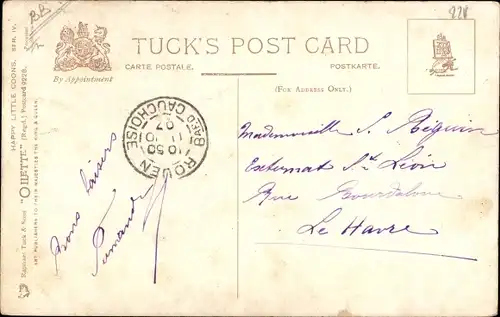 BB
228
TUCK'S POST CARD
CARTE POSTALE. POSTKARTE.
By Appointment
(FOR ADDRESS ONLY.)
HAPPY LITTLE COONS. SER. IV.
Raphael Tuck & Sons' "OILETTE" [Regd.] Postcard 9228.
ART PUBLISHERS TO THEIR MAJESTIES THE KING & QUEEN.
ROUEN
10 50
11 10
07
BARD CAUCHOISE
Bons baisers
Mademoiselle S.
Externat St Léon
Rue Bourdaloue
Le Havre